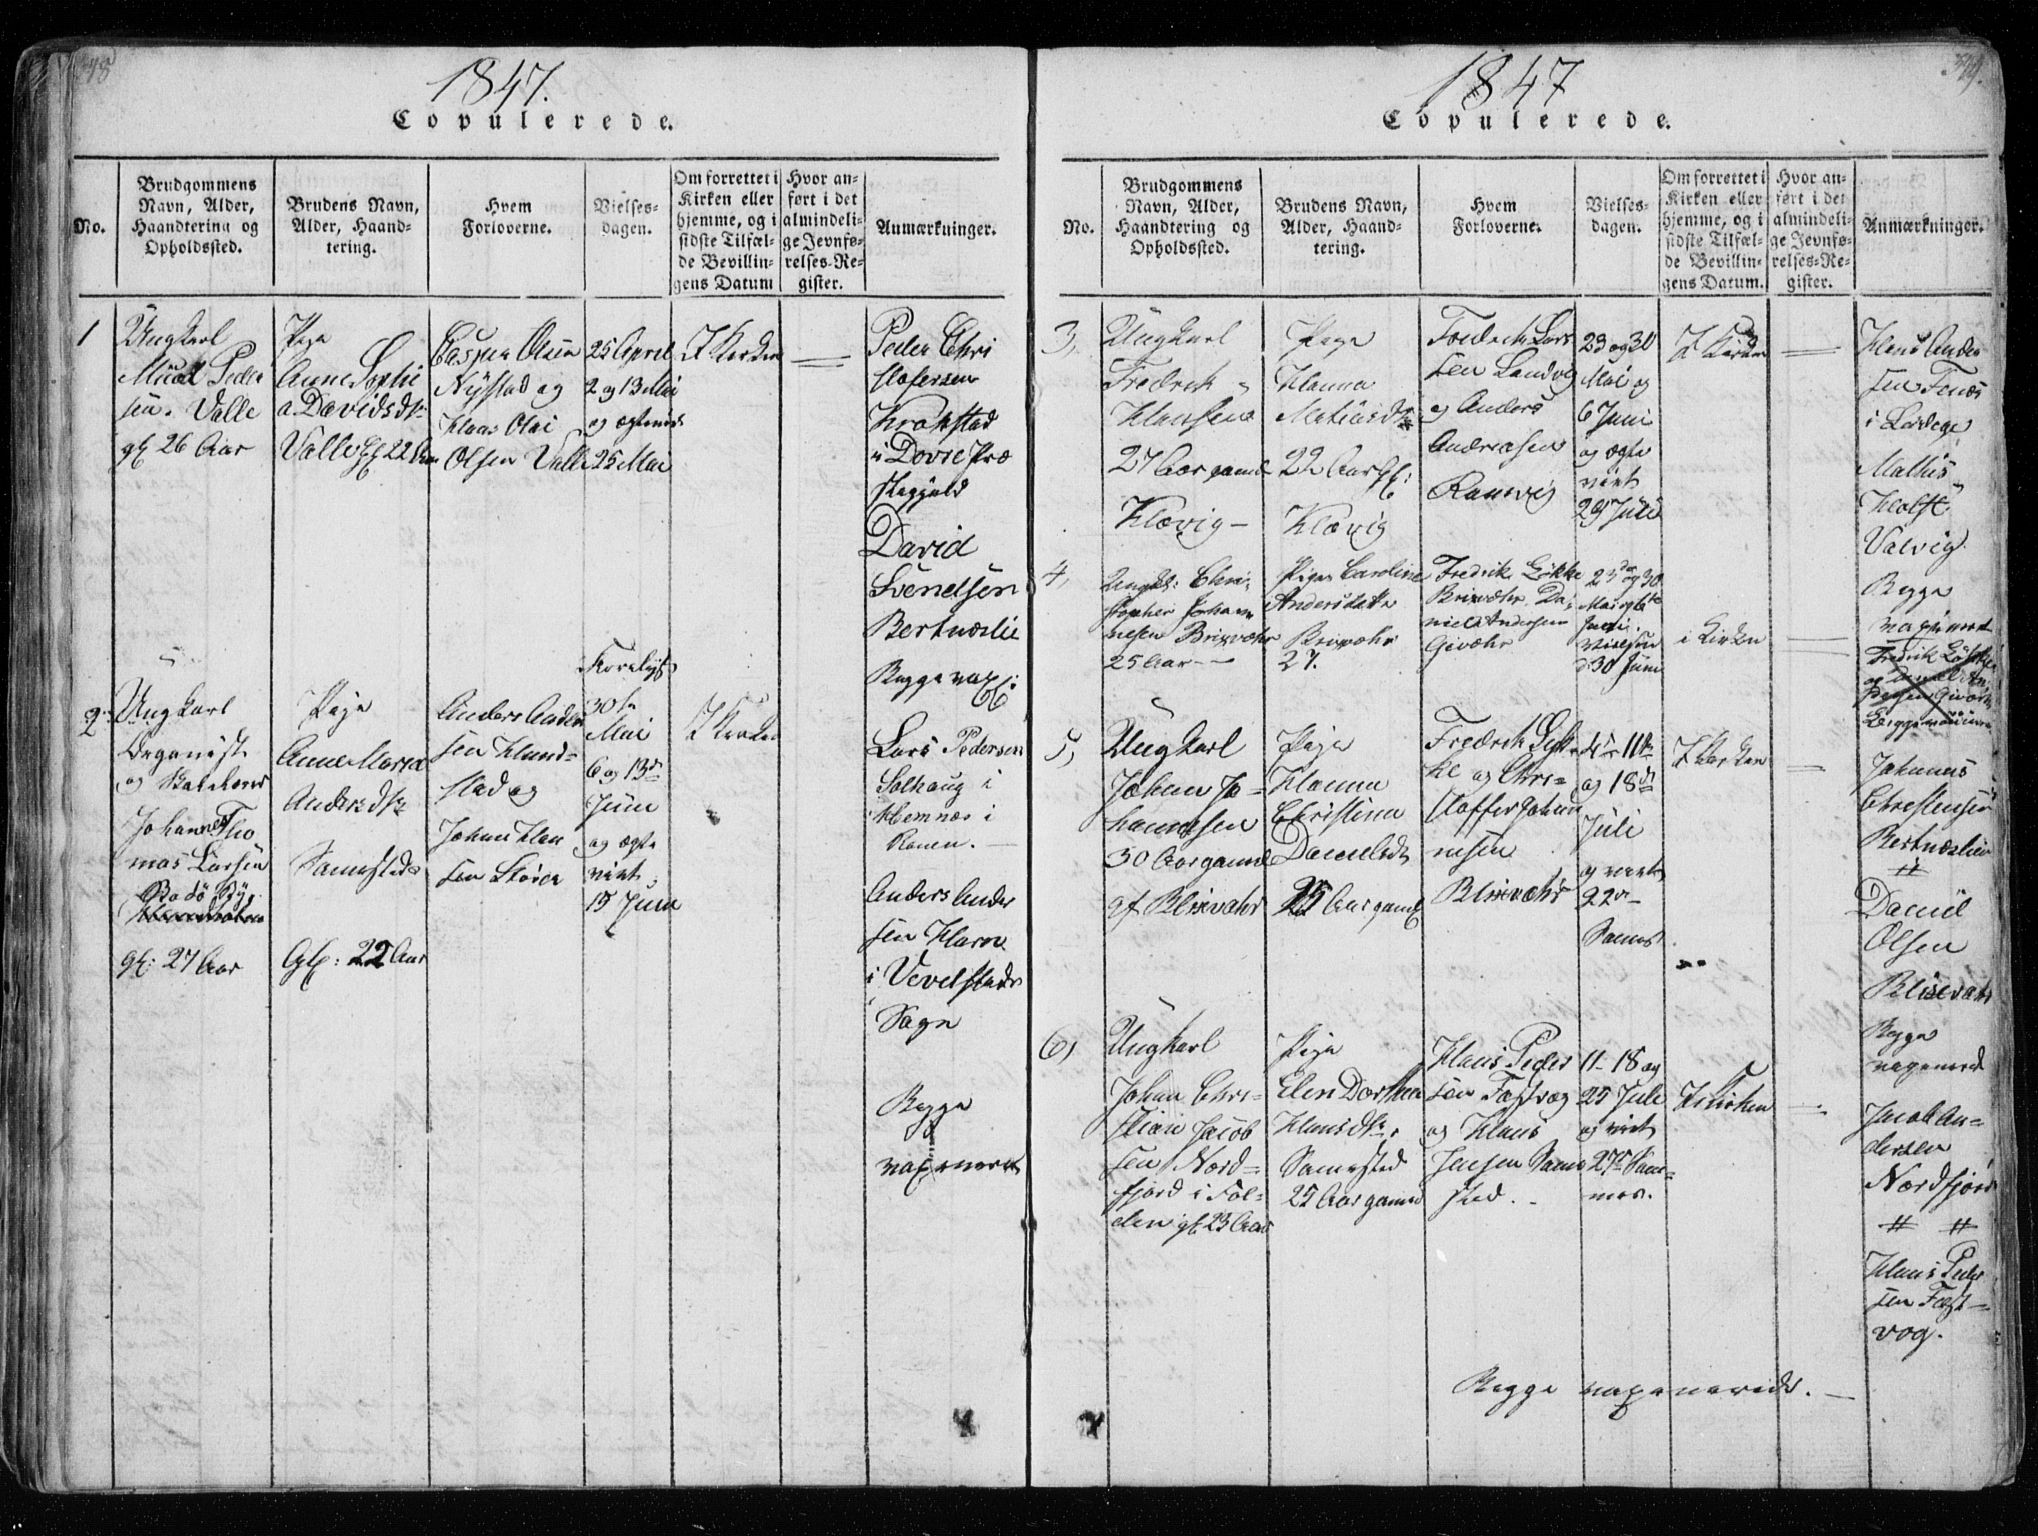 1847.
Copulerede.
No.
Brudgommens
Navn, Alder,
Haandtering og
Opholdssted.
Brudens Navn,
Alder, Haand-
tering.
Hvem
Forloverne.
Vielses-
dagen.
Om forrettet i
Kirken eller
hjemme, og i
sidste Tilfæl-
de Bevillin-
gens Datum
Hvor an-
ført i det
almindeli-
ge Jevnfø-
relses-Re-
gister.
Anmærkninger.
1
Ungkarl
Peder
sen. Valle
gl 26 Aar
Pige
Anne Sophie
Davidsdtr
Valle gl 22 Aar
Casper Olsen
Nystad og
Claus Olai
Olsen Valle
25 April
2 og 13 Mai
og ægteviet
25 Mai
I Kirken
Peder Chri
stofersen
Krokstad
i Dovre Præ
stegjeld
David
Svendsen
Bertnæslie
Begge vax:
2
Ungkarl
Organist
og
Johannes Tho
mas Larsen
Bodø
gl: 27 Aar
Pige
Anne Maria
Andersdtr
Samested
Gl: 22 Aar
Anders Ander
sen Hund-
stad og
Johan Han
sen Støver
30te
Mai
6 og 13de
Juni
og ægte
viet
15 Juni
I Kirken
Lars Pedersen
Solhaug i
Hemnæs i
Ranen.
Anders Ander
sen Havn
i Vevelstads
Sogn
Begge
vaxinerede
1847
Copulerede.
No.
Brudgommens
Navn, Alder,
Haandtering og
Opholdssted.
Brudens Navn,
Alder, Haand-
tering.
Hvem
Forloverne.
Vielses-
dagen.
Om forrettet i
Kirken eller
hjemme, og i
sidste Tilfæl-
de Bevillin-
gens Datum.
Hvor an-
ført i det
almindeli-
ge Jevnfø-
relses-Re-
gister.
Anmærkninger.
3,
Ungkarl
Fredrik
Hansen
27 Aar gamel
Kløvig
Pige
Hanna
Matiasdtr
22 Aar gl:
Kløvig
Fredrik Lars
sen Landvig
og Anders
Andreasen
Rønvig
23 og 30
Mai og
6 Juni
og ægte
viet
29 Juli
I Kirken
Hans Ander
sen
i Lødøge
Mathis
Holst
Valvig
Begge
vaxinerede
4,
Ungk: Chri-
stopher Johan
nesen Brixvær
25 Aar
Pigen Caroline
Andersdatter
Brixvær
27.
Fredrik Løkke
Brixvær Da-
niel Andersen
Givær
23de og 30
Mai og 6te
Juni.
Vielsen
d. 30 Juni
i Kirken
5,
Ungkarl
Johan Jo-
hannesen
30 Aar gamel
af Blixvær
Pige
Hanna
Christina
Danielsdtr
25 Aar gamel
Fredrik Løk
ke og Chri-
stoffer Johan
nesen
Blixvær
4- 11te
og 18de
Juli
og viet
22de
Sames
I Kirken
Johannes
Christensen
Bertnæslien
Daniel
Olsen
Blixvær
Begge
vaxinerede
6,
Ungkarl
Johan Chri-
stian Jacob
sen Nord-
fjord i Fol-
den gl 23 Aar
Pige
Elen Dorthea
Hansdtr
Samested
25 Aar gamel
Hans Peder
sen Fastvog
og Hans
Jensen Same
sted.
11- 18 og
25 Juli
og viet
27de Sam-
mes.
I Kirken
Jacob An-
dersen
Nordfjord
Hans Peder
sen Fast-
vog.
Begge vaxinerede.